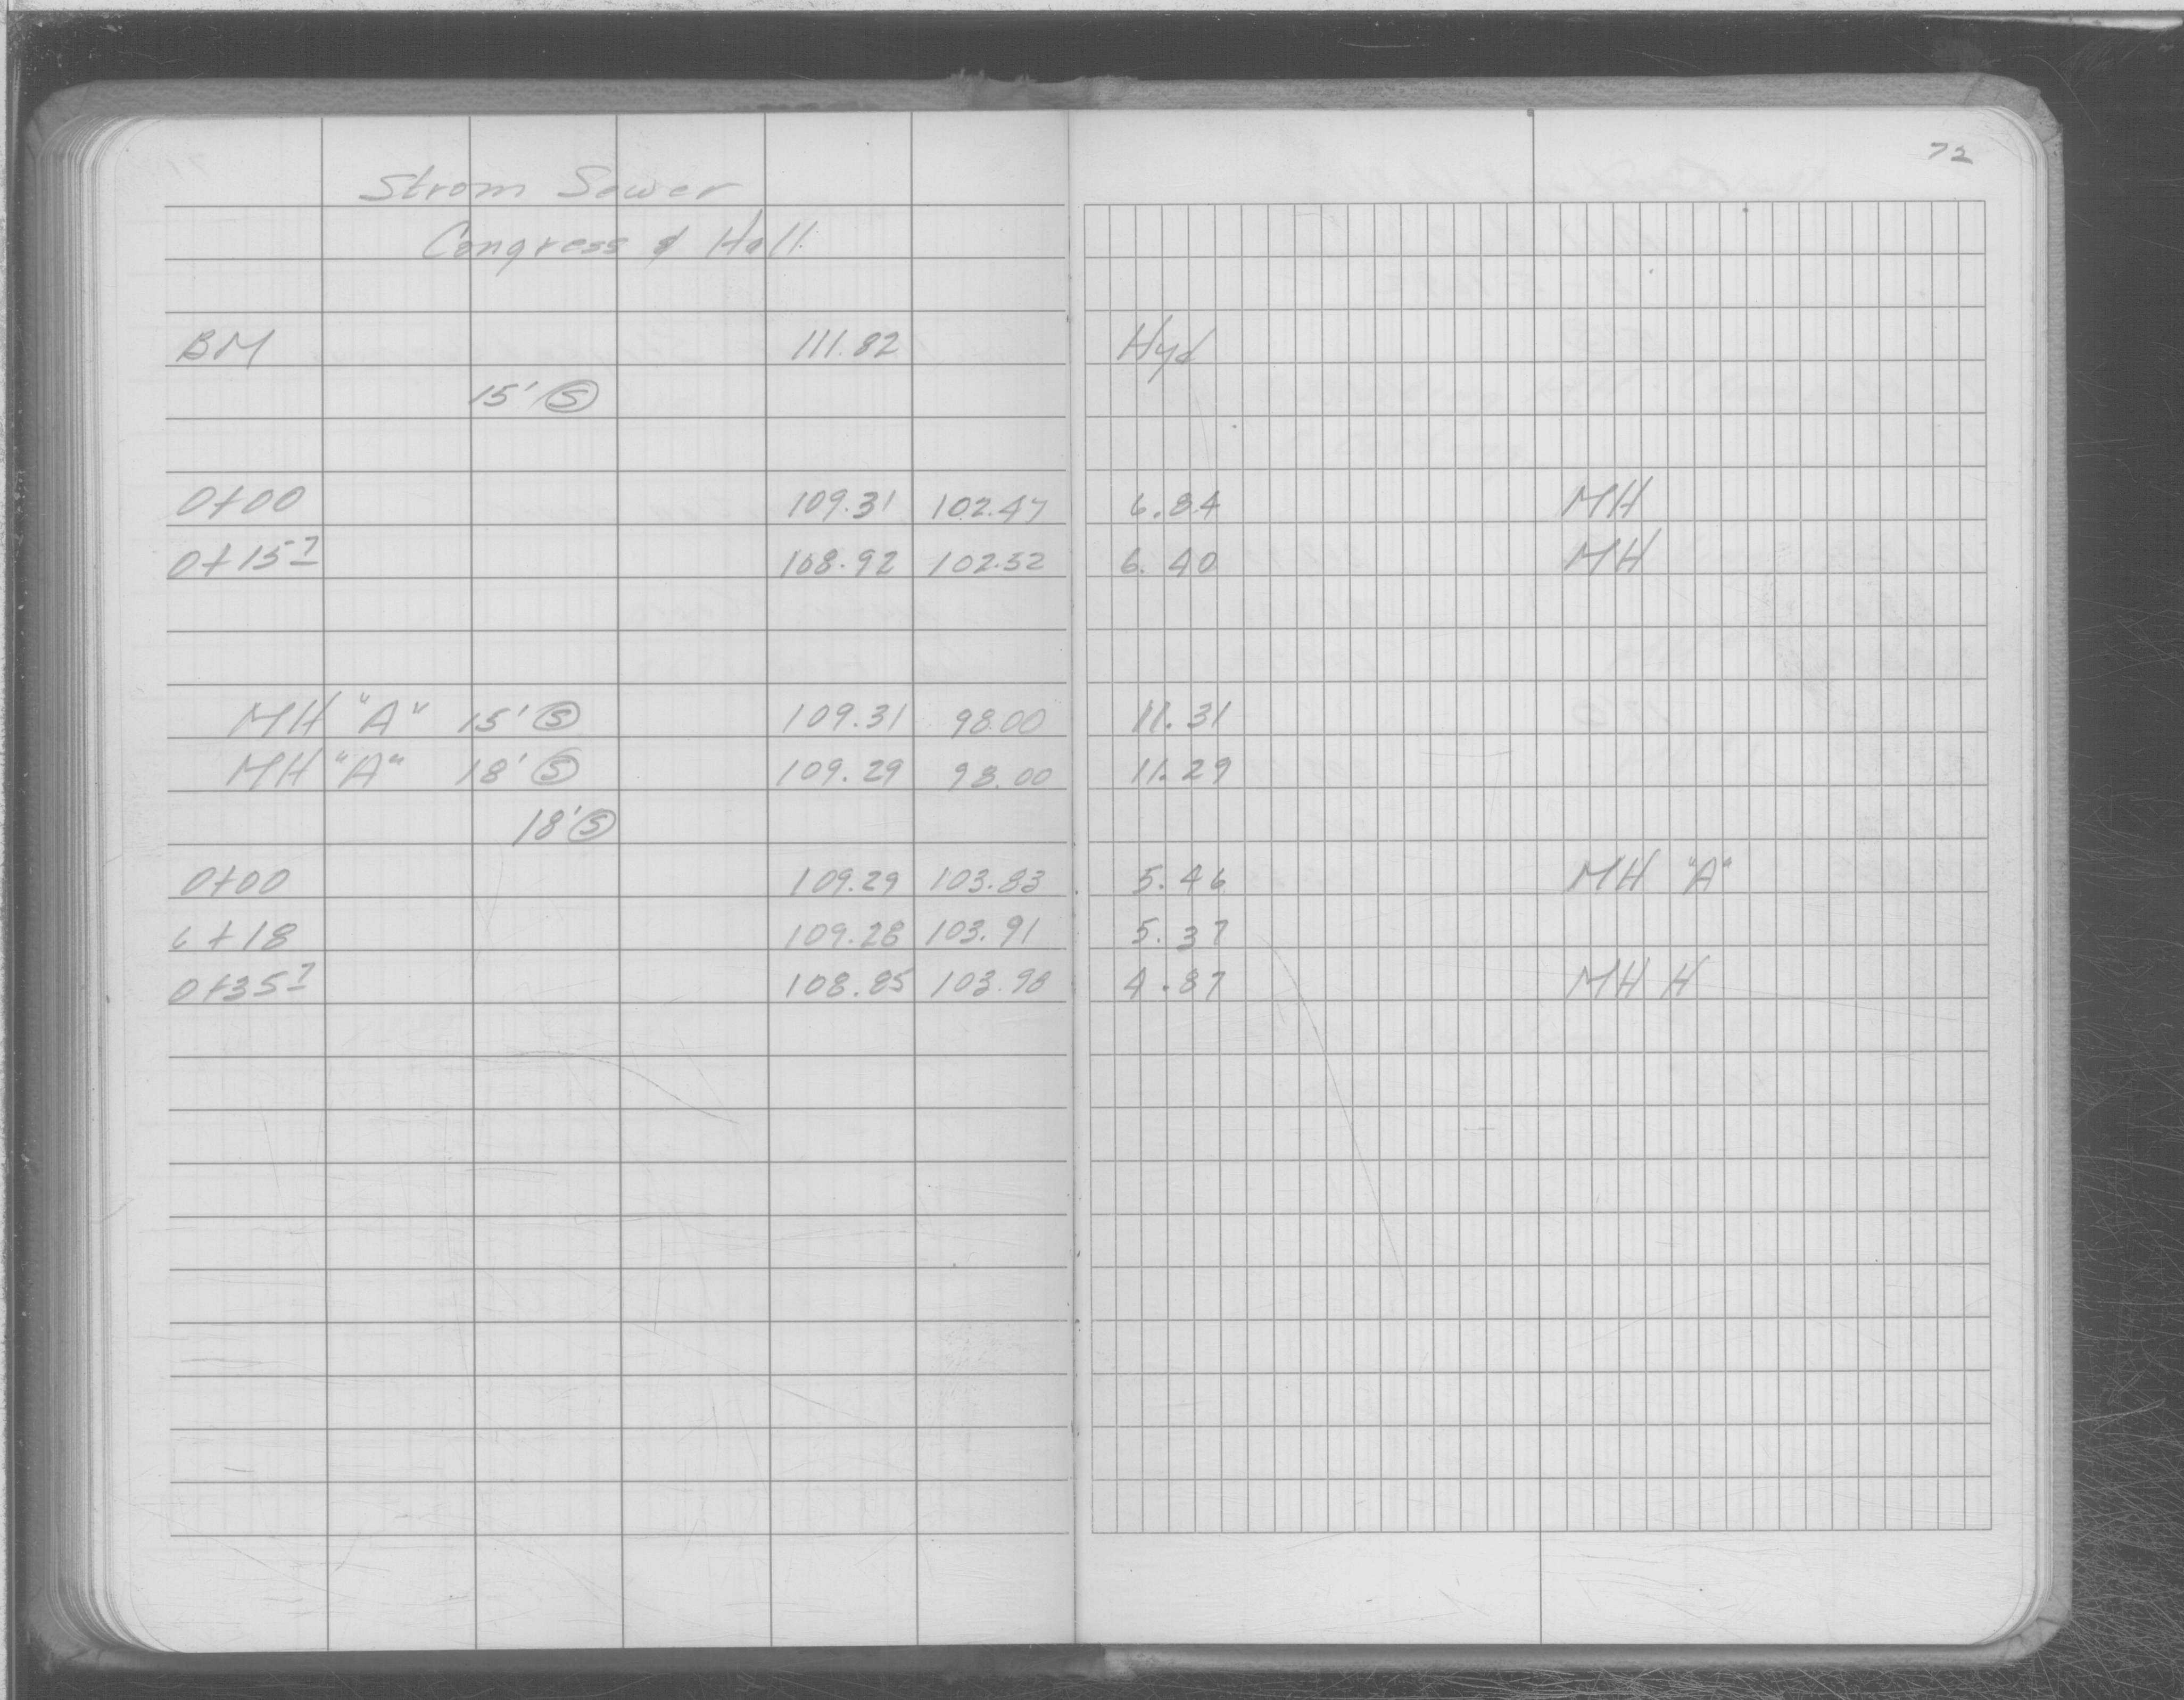 72
Strom Sewer
Congress & Hall
BM 111.82 Hyd
15' S
0+00 109.31 102.47 6.84 MH
0+15 7 108.92 102.52 6.40 MH
MH "A" 15' S 109.31 98.00 11.31
MH "A" 18' S 109.29 98.00 11.29
18' S
0+00 109.29 103.83 5.46 MH "A"
0+18 109.28 103.91 5.37
0+35 7 108.85 103.98 4.87 MH H